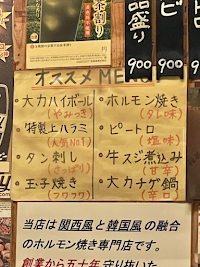 茶割り
品盛り
ビ
900
900
オススメMENU
大力ハイボール
(やみつき)
特製上ハラミ
(人気NO1)
タン刺し
(さっぱり)
玉子焼き
(フワフワ)
ホルモン焼き
(タレ味)
ピートロ
(塩味)
牛スジ煮込み
(甘辛)
大力チゲ鍋
(辛口)
当店は関西風と韓国風の融合
のホルモン焼き専門店です。
創業から五十年守り抜いた